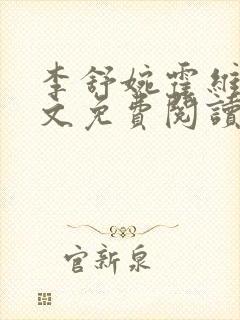 李舒婉霍維
文免費閱讀
官新泉